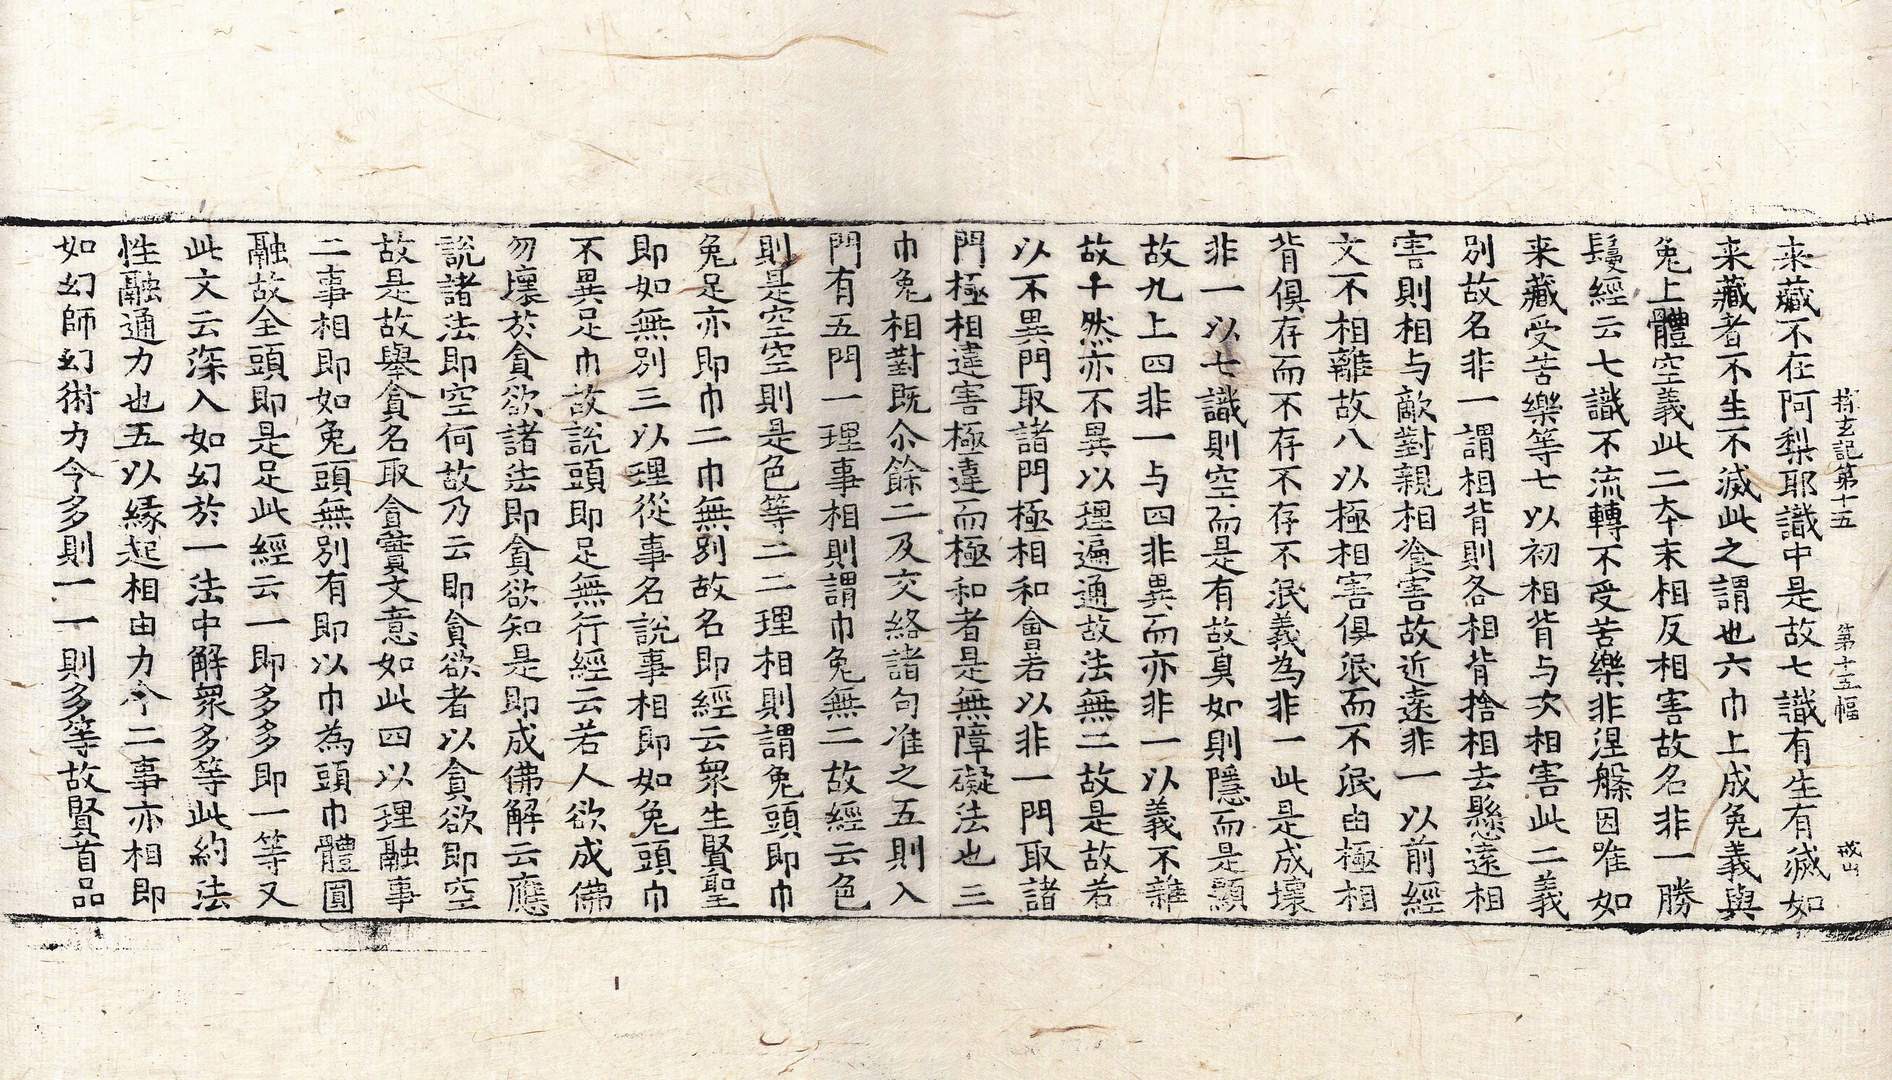 搜玄記第十五　第十五幅　戒山
来藏不在阿梨耶識中是故七識有生有滅如
来藏者不生不滅此之謂也六巾上成兔義與
兔上體空義此二夲末相反相害故名非一勝
鬘經云七識不流轉不受苦樂非涅槃因唯如
来藏受苦樂等七以初相背与次相害此二義
別故名非一謂相背則各相背捨相去懸遠相
害則相与敵對親相飡害故近遠非一以前經
文不相離故八以極相害俱泯而不泯由極相
背俱存而不存不存不泯義為非一此是成壞
非一以七識則空而是有故真如則隱而是顯
故九上四非一与四非異而亦非一以義不雜
故十然亦不異以理遍通故法無二故是故若
以不異門取諸門極相和會若以非一門取諸
門極相違害極違而極和者是無障礙法也三
巾兔相對既尒餘二及交絡諸句准之五則入
門有五門一理事相則謂巾兔無二故經云色
則是空空則是色等二二理相則謂兔頭即巾
兔足亦即巾二巾無別故名即經云眾生賢聖
即如無別三以理從事名說事相即如兔頭巾
不異足巾故說頭即足無行經云若人欲成佛
勿壞於貪欲諸法即貪欲知是即成佛解云應
說諸法即空何故乃云即貪欲者以貪欲即空
故是故舉貪名取貪實文意如此四以理融事
二事相即如兔頭無別有即以巾為頭巾體圓
融故全頭即是足此經云一即多多即一等又
此文云深入如幻於一法中解眾多等此約法
性融通力也五以緣起相由力令二事亦相即
如幻師幻術力令多則一一則多等故賢首品